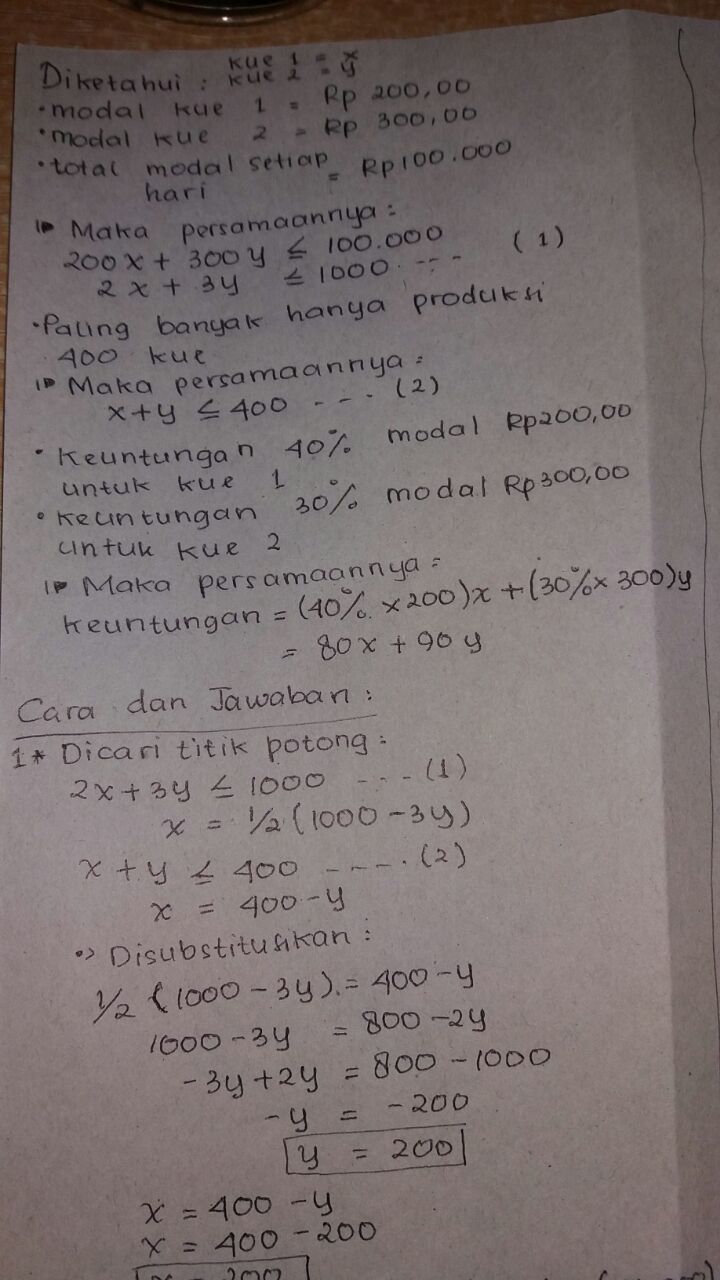 Diketahui : kue 1 = x
kue 2 = y
• modal kue 1 = Rp 200,00
• modal kue 2 = Rp 300,00
• total modal setiap hari = Rp100.000
Maka persamaannya :
200x + 300y ≤ 100.000
2x + 3y ≤ 1000 --- (1)
• Paling banyak hanya produksi
400 kue
Maka persamaannya :
x+y ≤ 400 --- (2)
• Keuntungan 40% modal Rp200,00
untuk kue 1
• Keuntungan 30% modal Rp300,00
untuk kue 2
Maka persamaannya :
keuntungan = (40% × 200)x + (30% × 300)y
= 80x + 90y
Cara dan Jawaban :
1* Dicari titik potong :
2x + 3y ≤ 1000 --- (1)
x = 1/2 (1000 - 3y)
x + y ≤ 400 ---- (2)
x = 400 - y
Disubstitusikan :
1/2 (1000 - 3y) = 400 - y
1000 - 3y = 800 - 2y
-3y + 2y = 800 - 1000
-y = -200
y = 200
x = 400 - y
x = 400 - 200